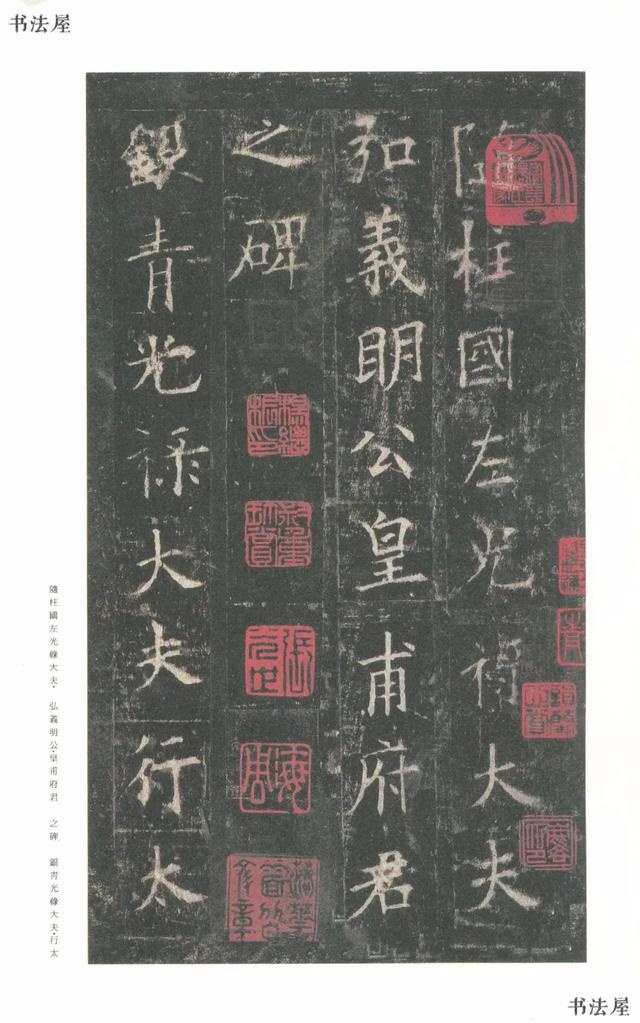 书法屋
隨柱國左光祿大夫
弘義明公皇甫府君
之碑
銀青光祿大夫行太
隨柱國左光祿大夫· 弘義明公·皇甫府君 之碑 銀青光祿大夫·行太
书法屋